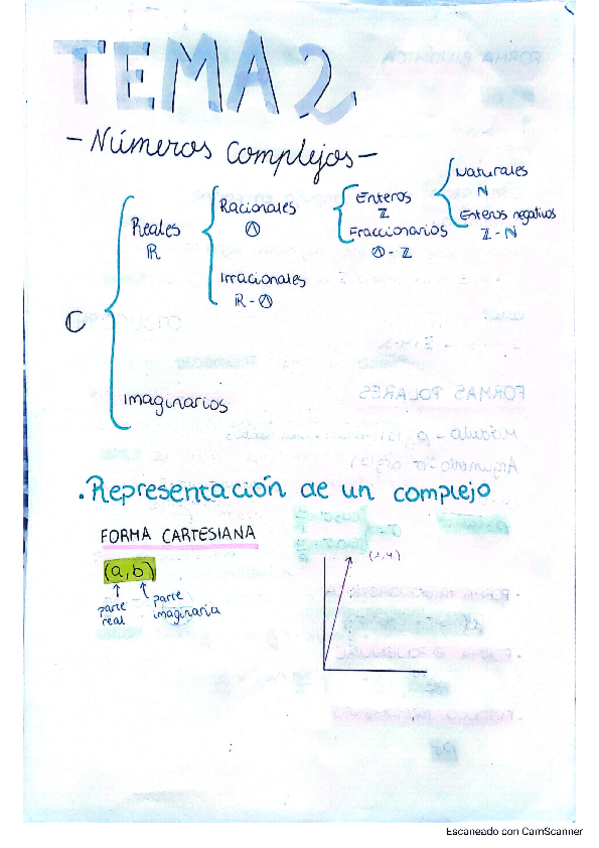 TEMA 2
- Números complejos -
C
Reales
R
Racionales
Q
Enteros
Z
Naturales
N
Enteros negativos
Z - N
Fraccionarios
Q - Z
Irracionales
R - Q
Imaginarios
. Representación de un complejo
FORMA CARTESIANA
(a,b)
parte real
parte imaginaria
Escaneado con CamScanner